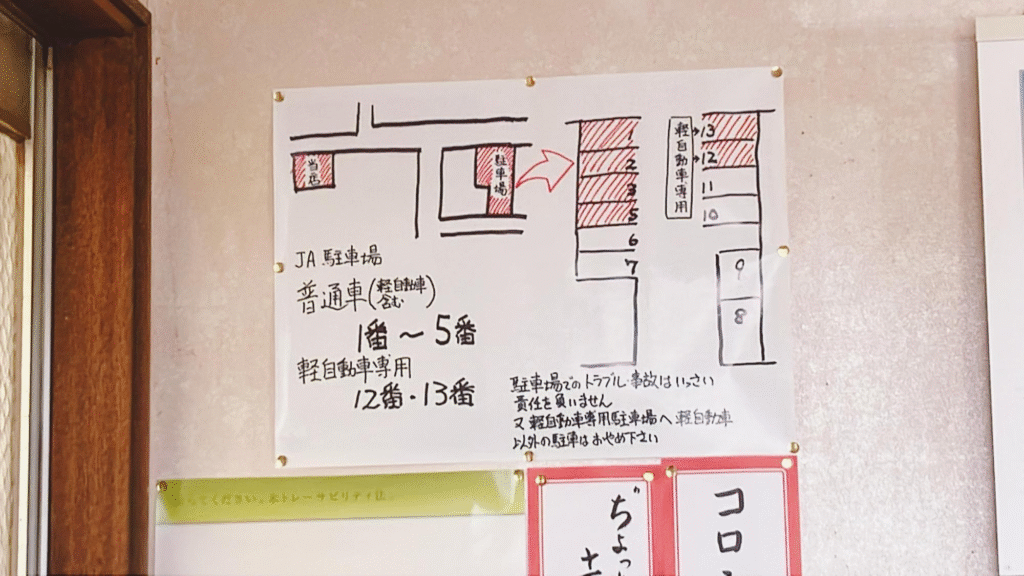 当店
駐車場
1
2
3
5
6
7
軽自動車専用
13
12
11
10
9
8
JA駐車場
普通車(軽自動車含む)
1番～5番
軽自動車専用
12番・13番
駐車場でのトラブル・事故はいっさい
責任を負いません
又軽自動車専用駐車場へ軽自動車
以外の駐車はおやめ下さい
ってください。米トレーサビリティ法。
ぢょっ
コロ